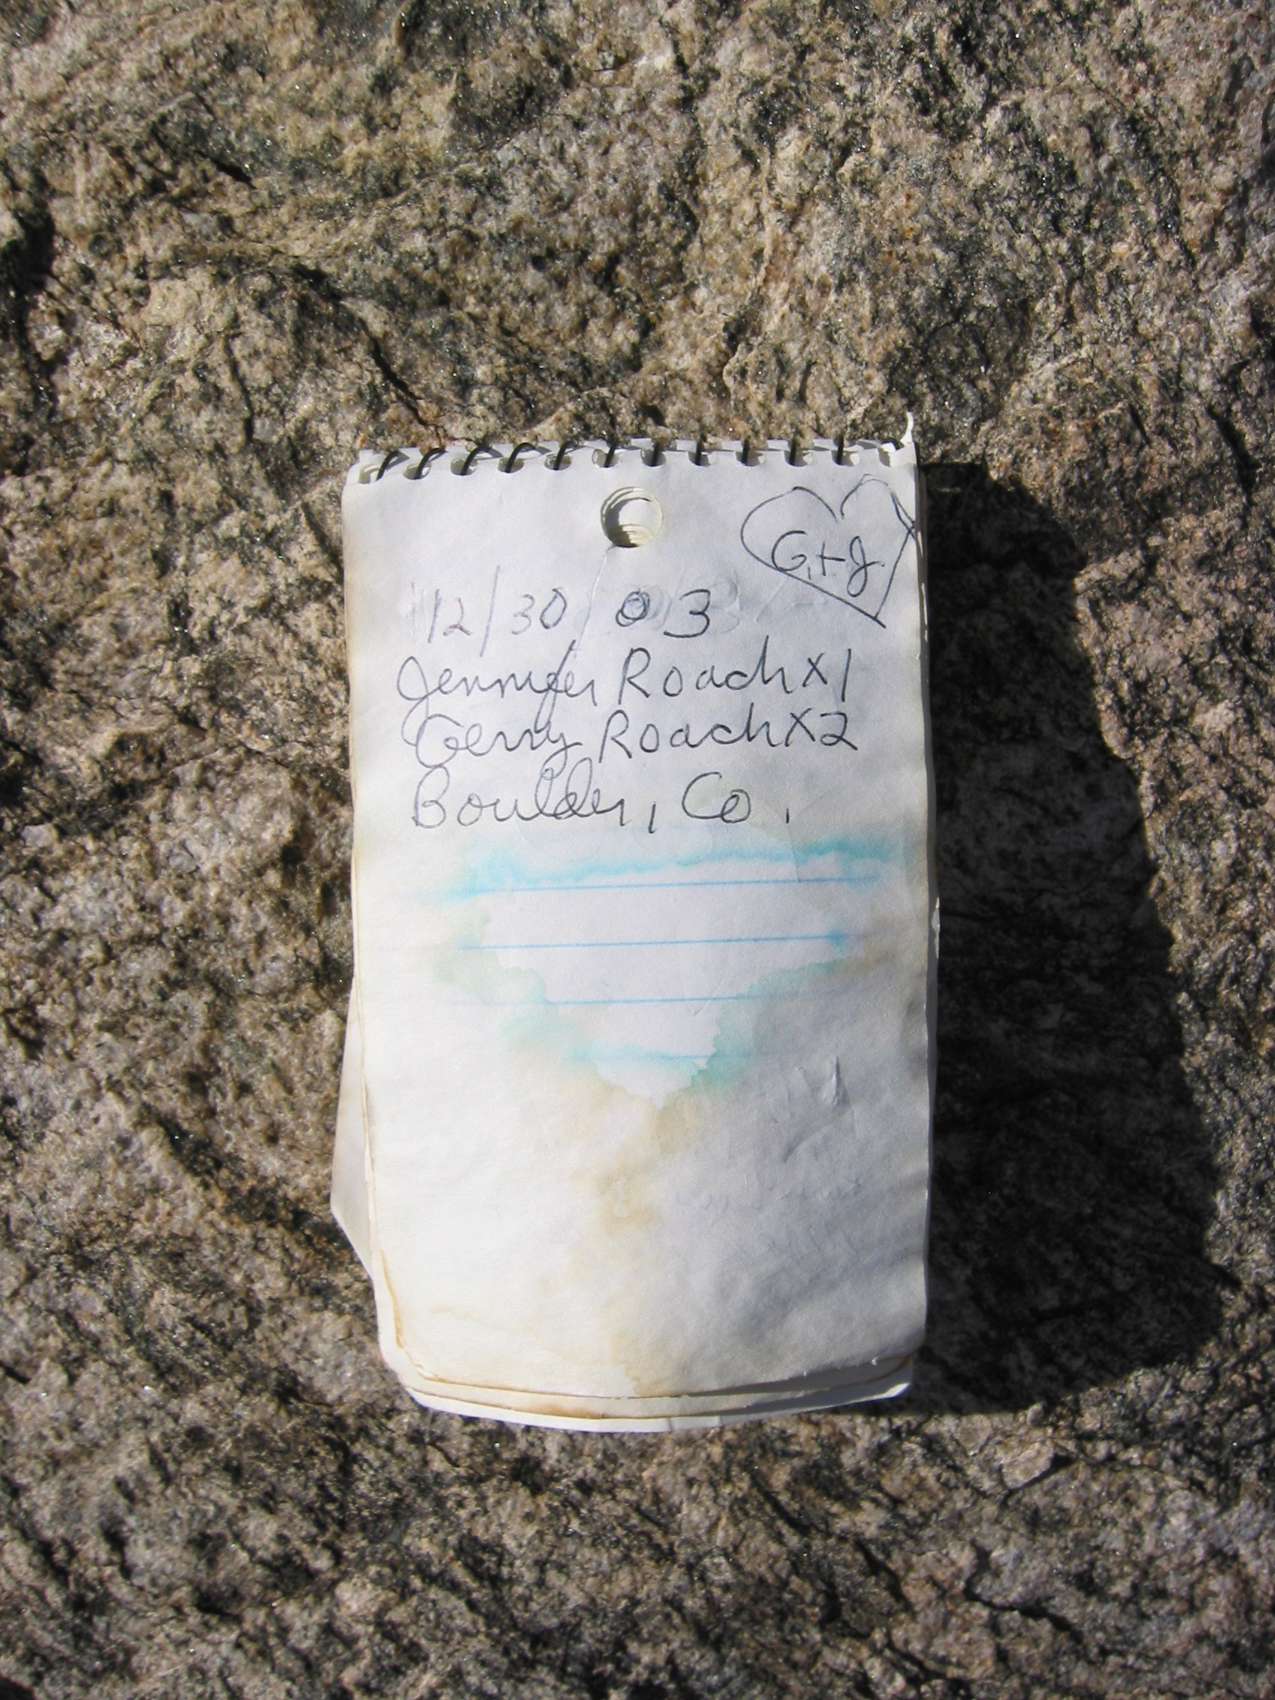 G+J
12/30/03
Jennifer Roach x1
Gerry Roach x2
Boulder, Co.